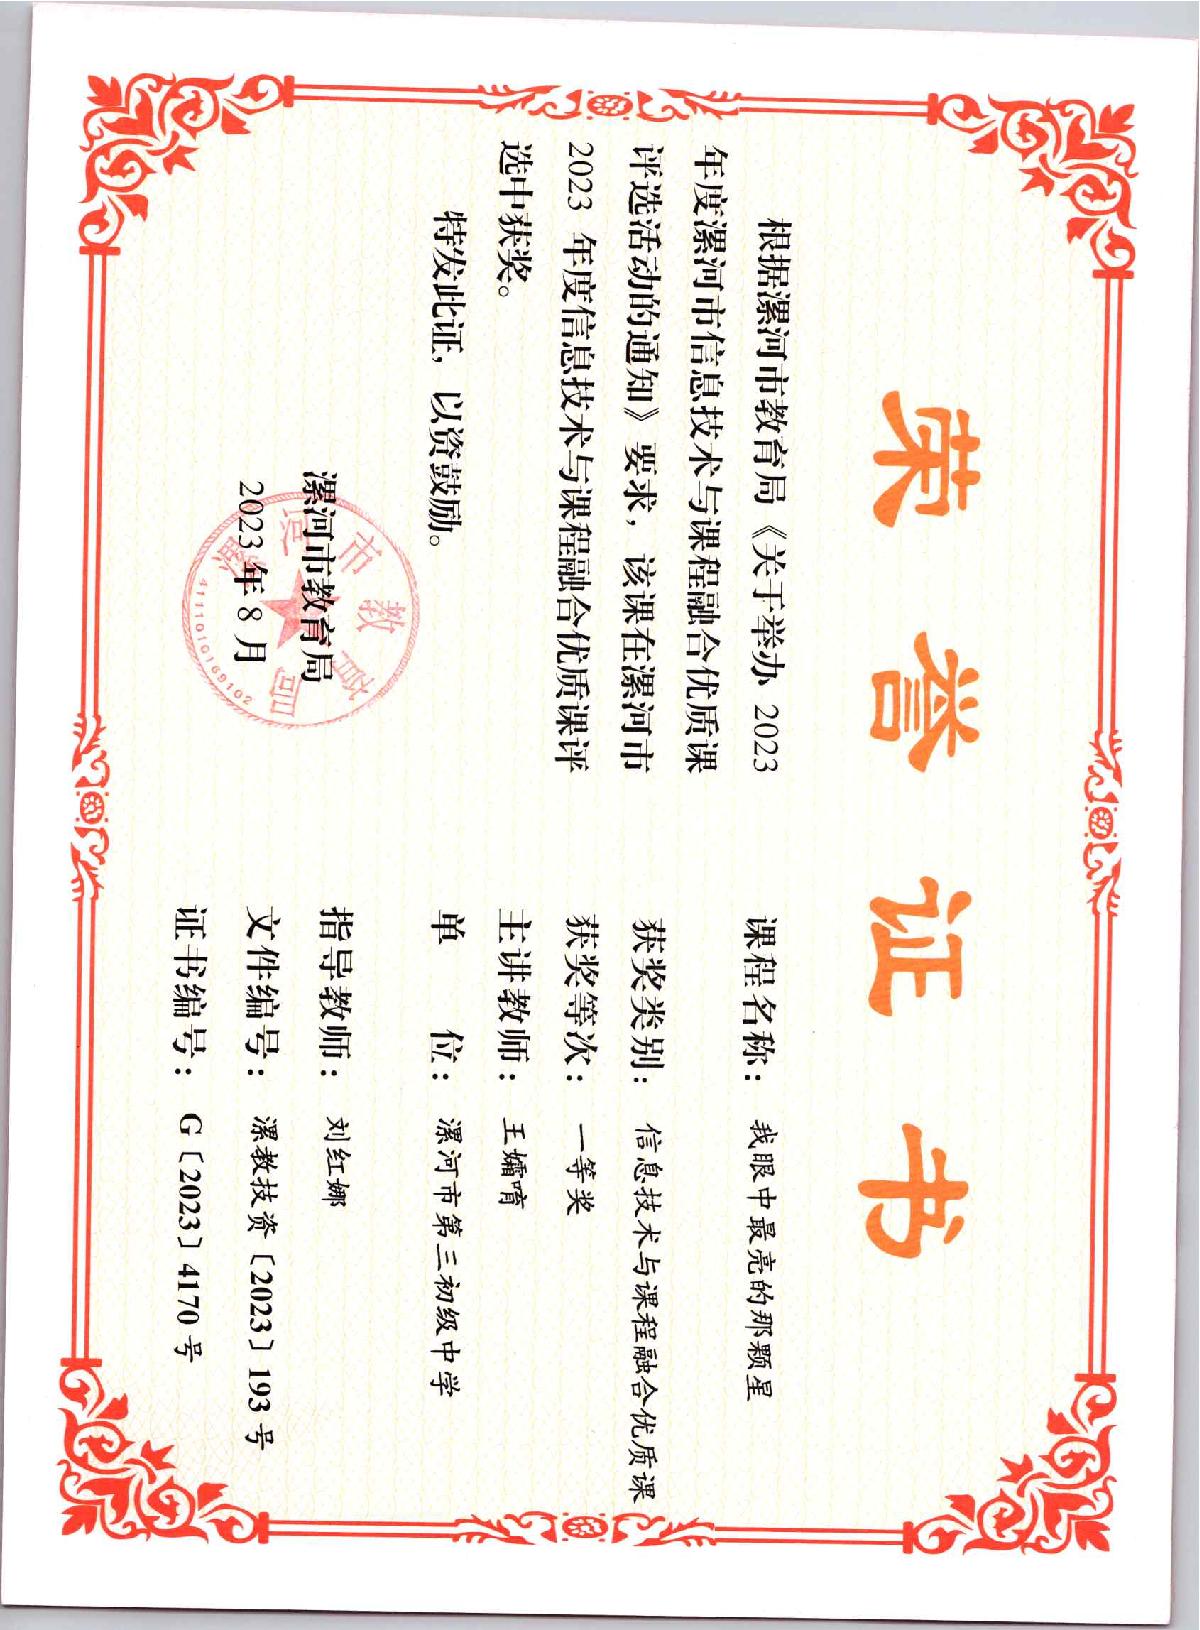 荣誉证书
根据漯河市教育局《关于举办 2023
年度漯河市信息技术与课程融合优质课
评选活动的通知》要求，该课在漯河市
2023 年度信息技术与课程融合优质课评
选中获奖。
特发此证，以资鼓励。
漯河市教育局
2023 年 8 月
漯河市教育局
4111010169102
课程名称：我眼中最亮的那颗星
获奖类别：信息技术与课程融合优质课
获奖等次：一等奖
主讲教师：王孀唷
单 位：漯河市第三初级中学
指导教师：刘红娜
文件编号：漯教技资〔2023〕193 号
证书编号：G〔2023〕4170 号